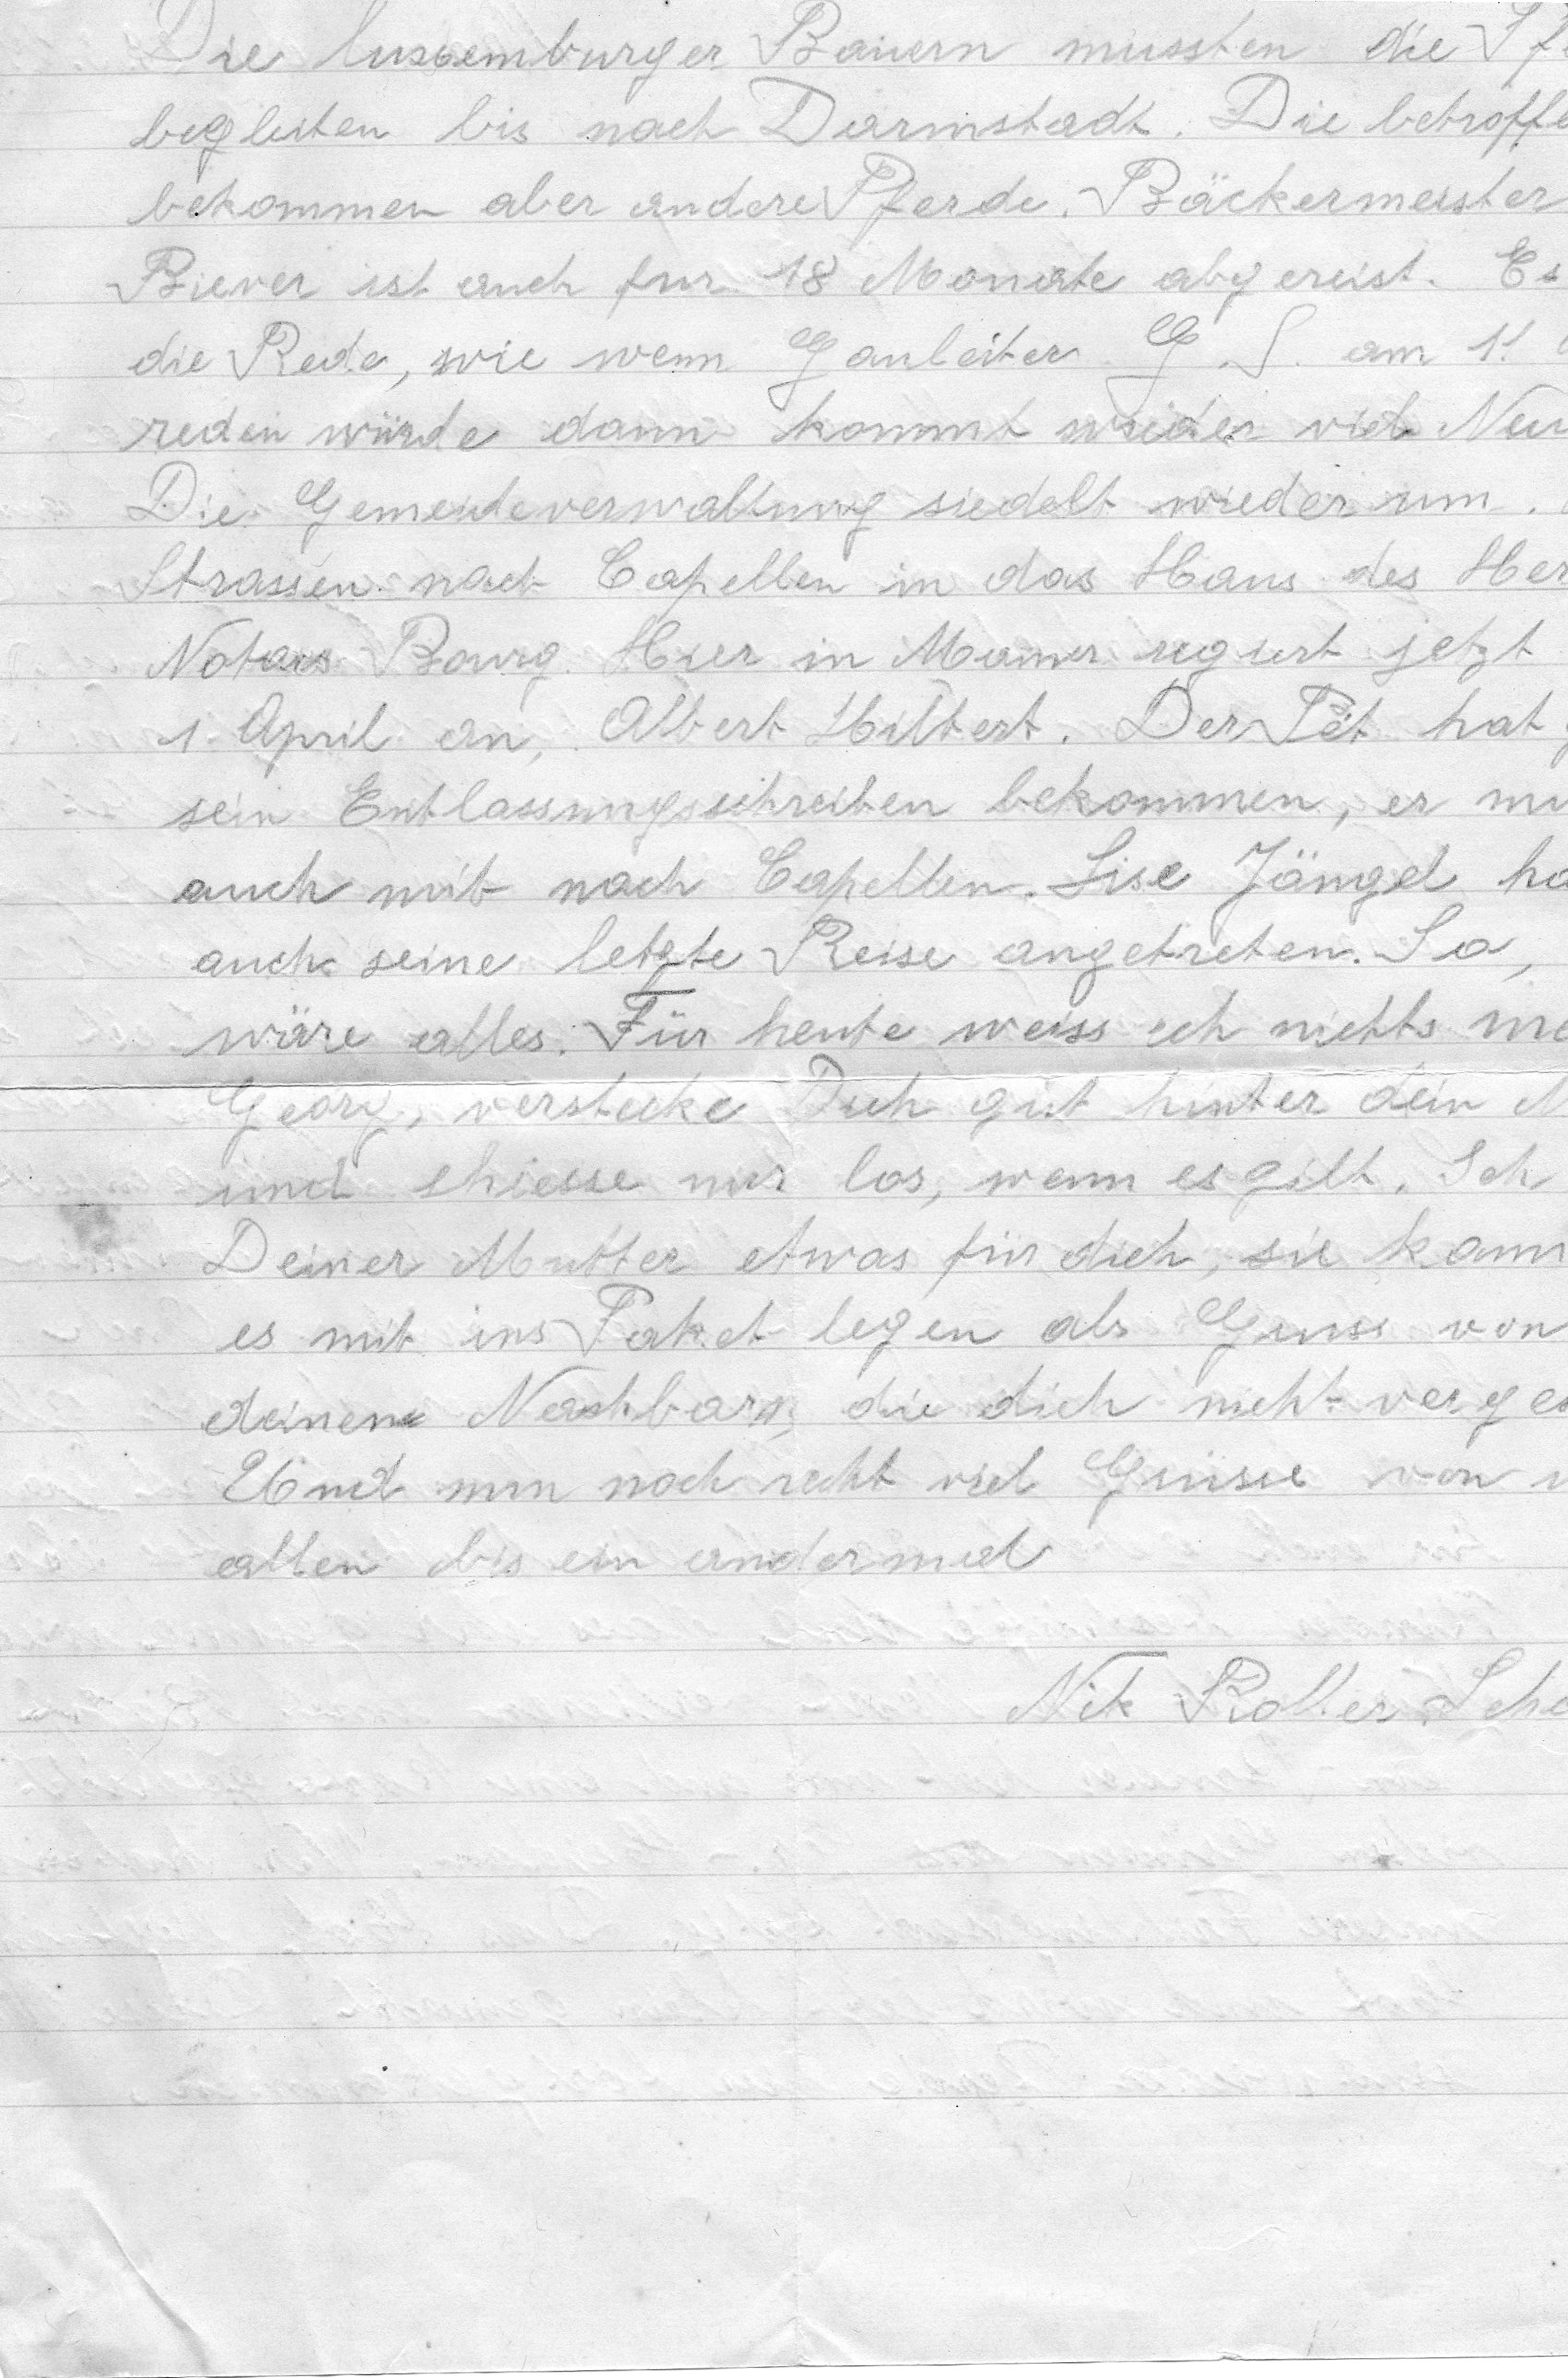 Die luxemburger Bauern mussten die Pf
begleiten bis nach Darmstadt. Die betroffe
bekommen aber andere Pferde. Bäckermeister
Biever ist auch fur 18 Monate abgereist. Es
die Rede, wie wenn Gauleiter G. S. am 1.
reden würde dann kommt wieder viel Neu
Die Gemeideverwaltung siedelt wieder um.
Strassen nach Capellen in das Haus des Her
Notars Bourg. Hier in Mamer regiert jetzt
1. April an, Albert Hilbert. Der Pêt hat
sein Entlassungsschreiben bekommen, er mu
auch mit nach Capellen. Lise Jängel ha
auch seine letzte Reise angetreten. So,
wäre alles. Für heute weiss ich nichts me
Georg, verstecke Dich gut hinter dein M
und shiesse nur los, wenn es gilt. Ich
Deiner Mutter etwas für dich, sie kann
es mit ins Paket legen als Gruss von
deinen Nachbarn, die dich nicht verges
Und nun noch recht viel Grüsse von u
allen bis ein andermal
Nik Roller. Sche